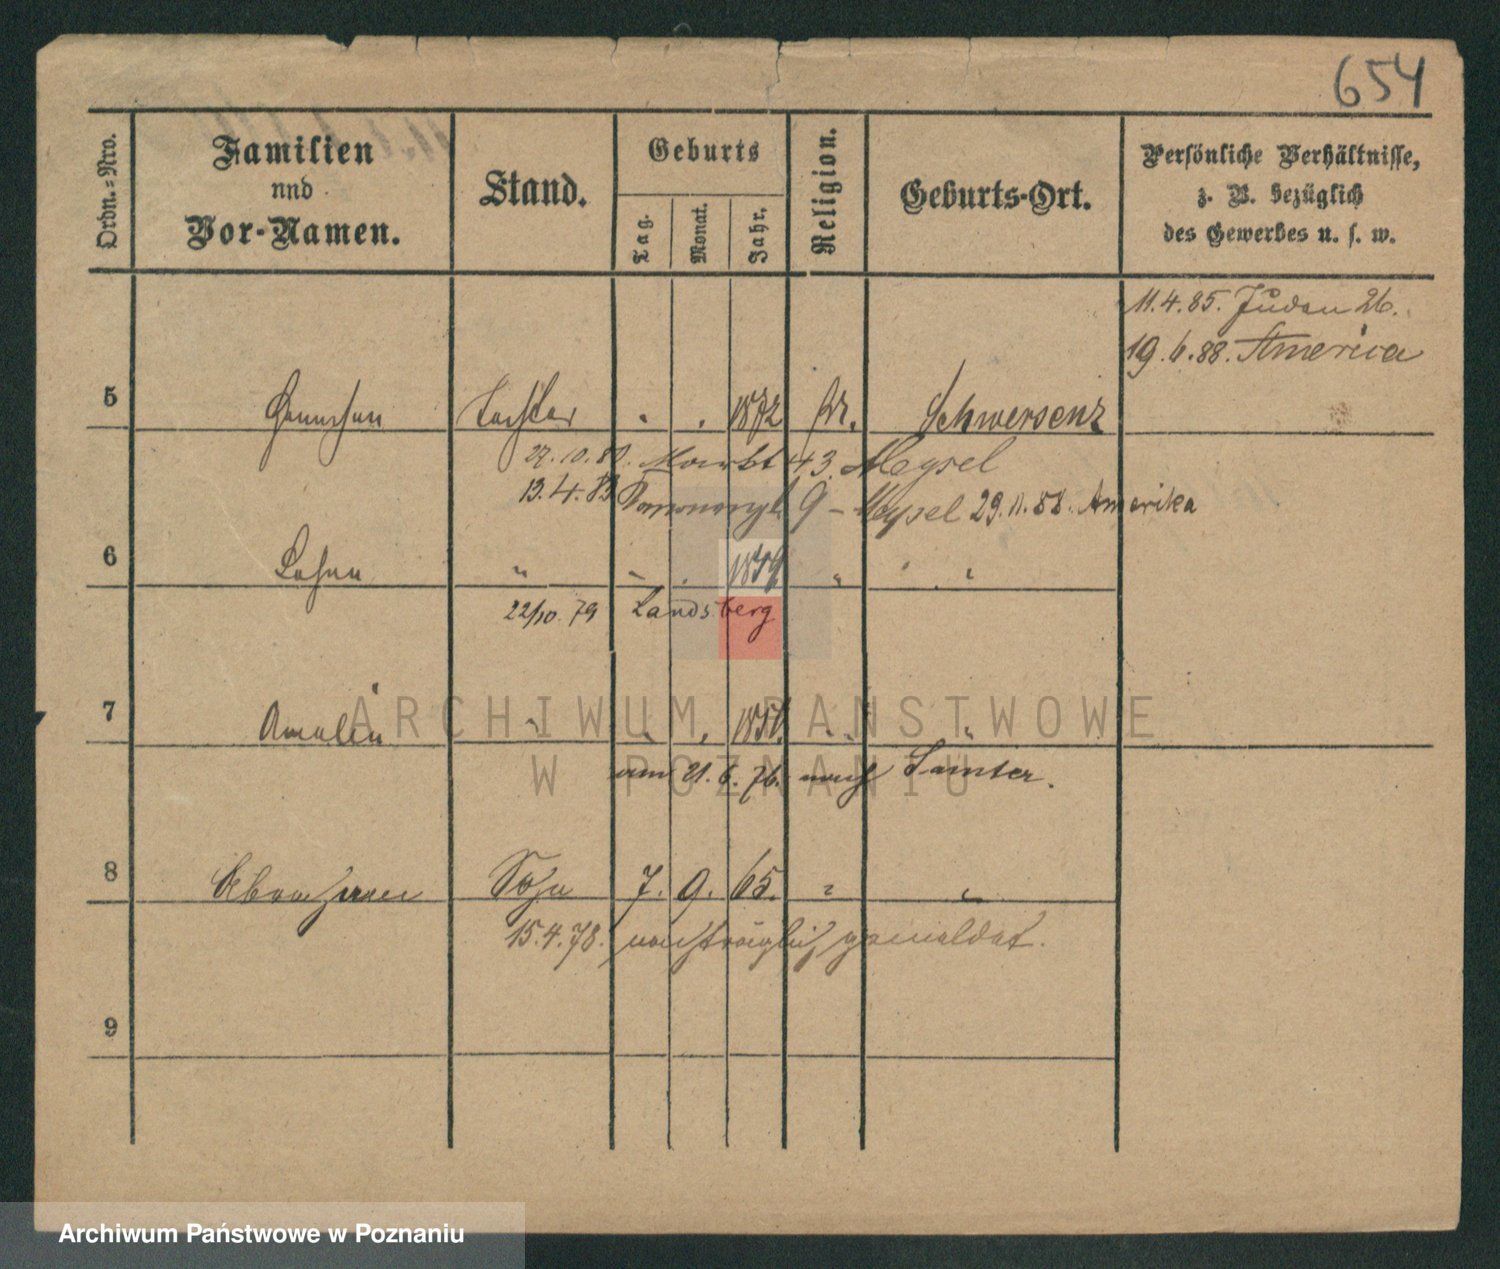 654
Ordn.=Nro.
Familien
nnd
Vor-Namen.
Stand.
Geburts
Tag.
Monat.
Jahr.
Religion.
Geburts-Ort.
Persönliche Verhältnisse,
z. B. bezüglich
des Gewerbes u. s. w.
11.4.85. Juden 26.
19.6.88. America
5 Tochter 1872 Schwersenz
27.10.80. Markt 43. Meysel
13.4.83 9 – Meysel 29.11.88. Amerika
6 " " "
22/10. 79 Landsberg
7 Amalie "
am 21.6.76. nach Samter.
8 Abraham Sohn 7. 9. 65. " "
15.4.78. nachträglich gemeldet.
9
ARCHIWUM PAŃSTWOWE
W POZNANIU
Archiwum Państwowe w Poznaniu